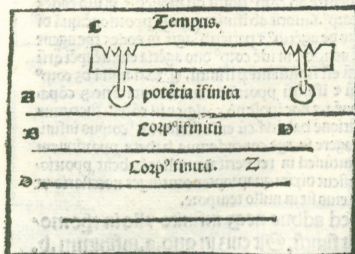 C Tempus.
A potētia īfinita
B Corpꝰ ifinitū
Corpꝰ finitū. Z
D